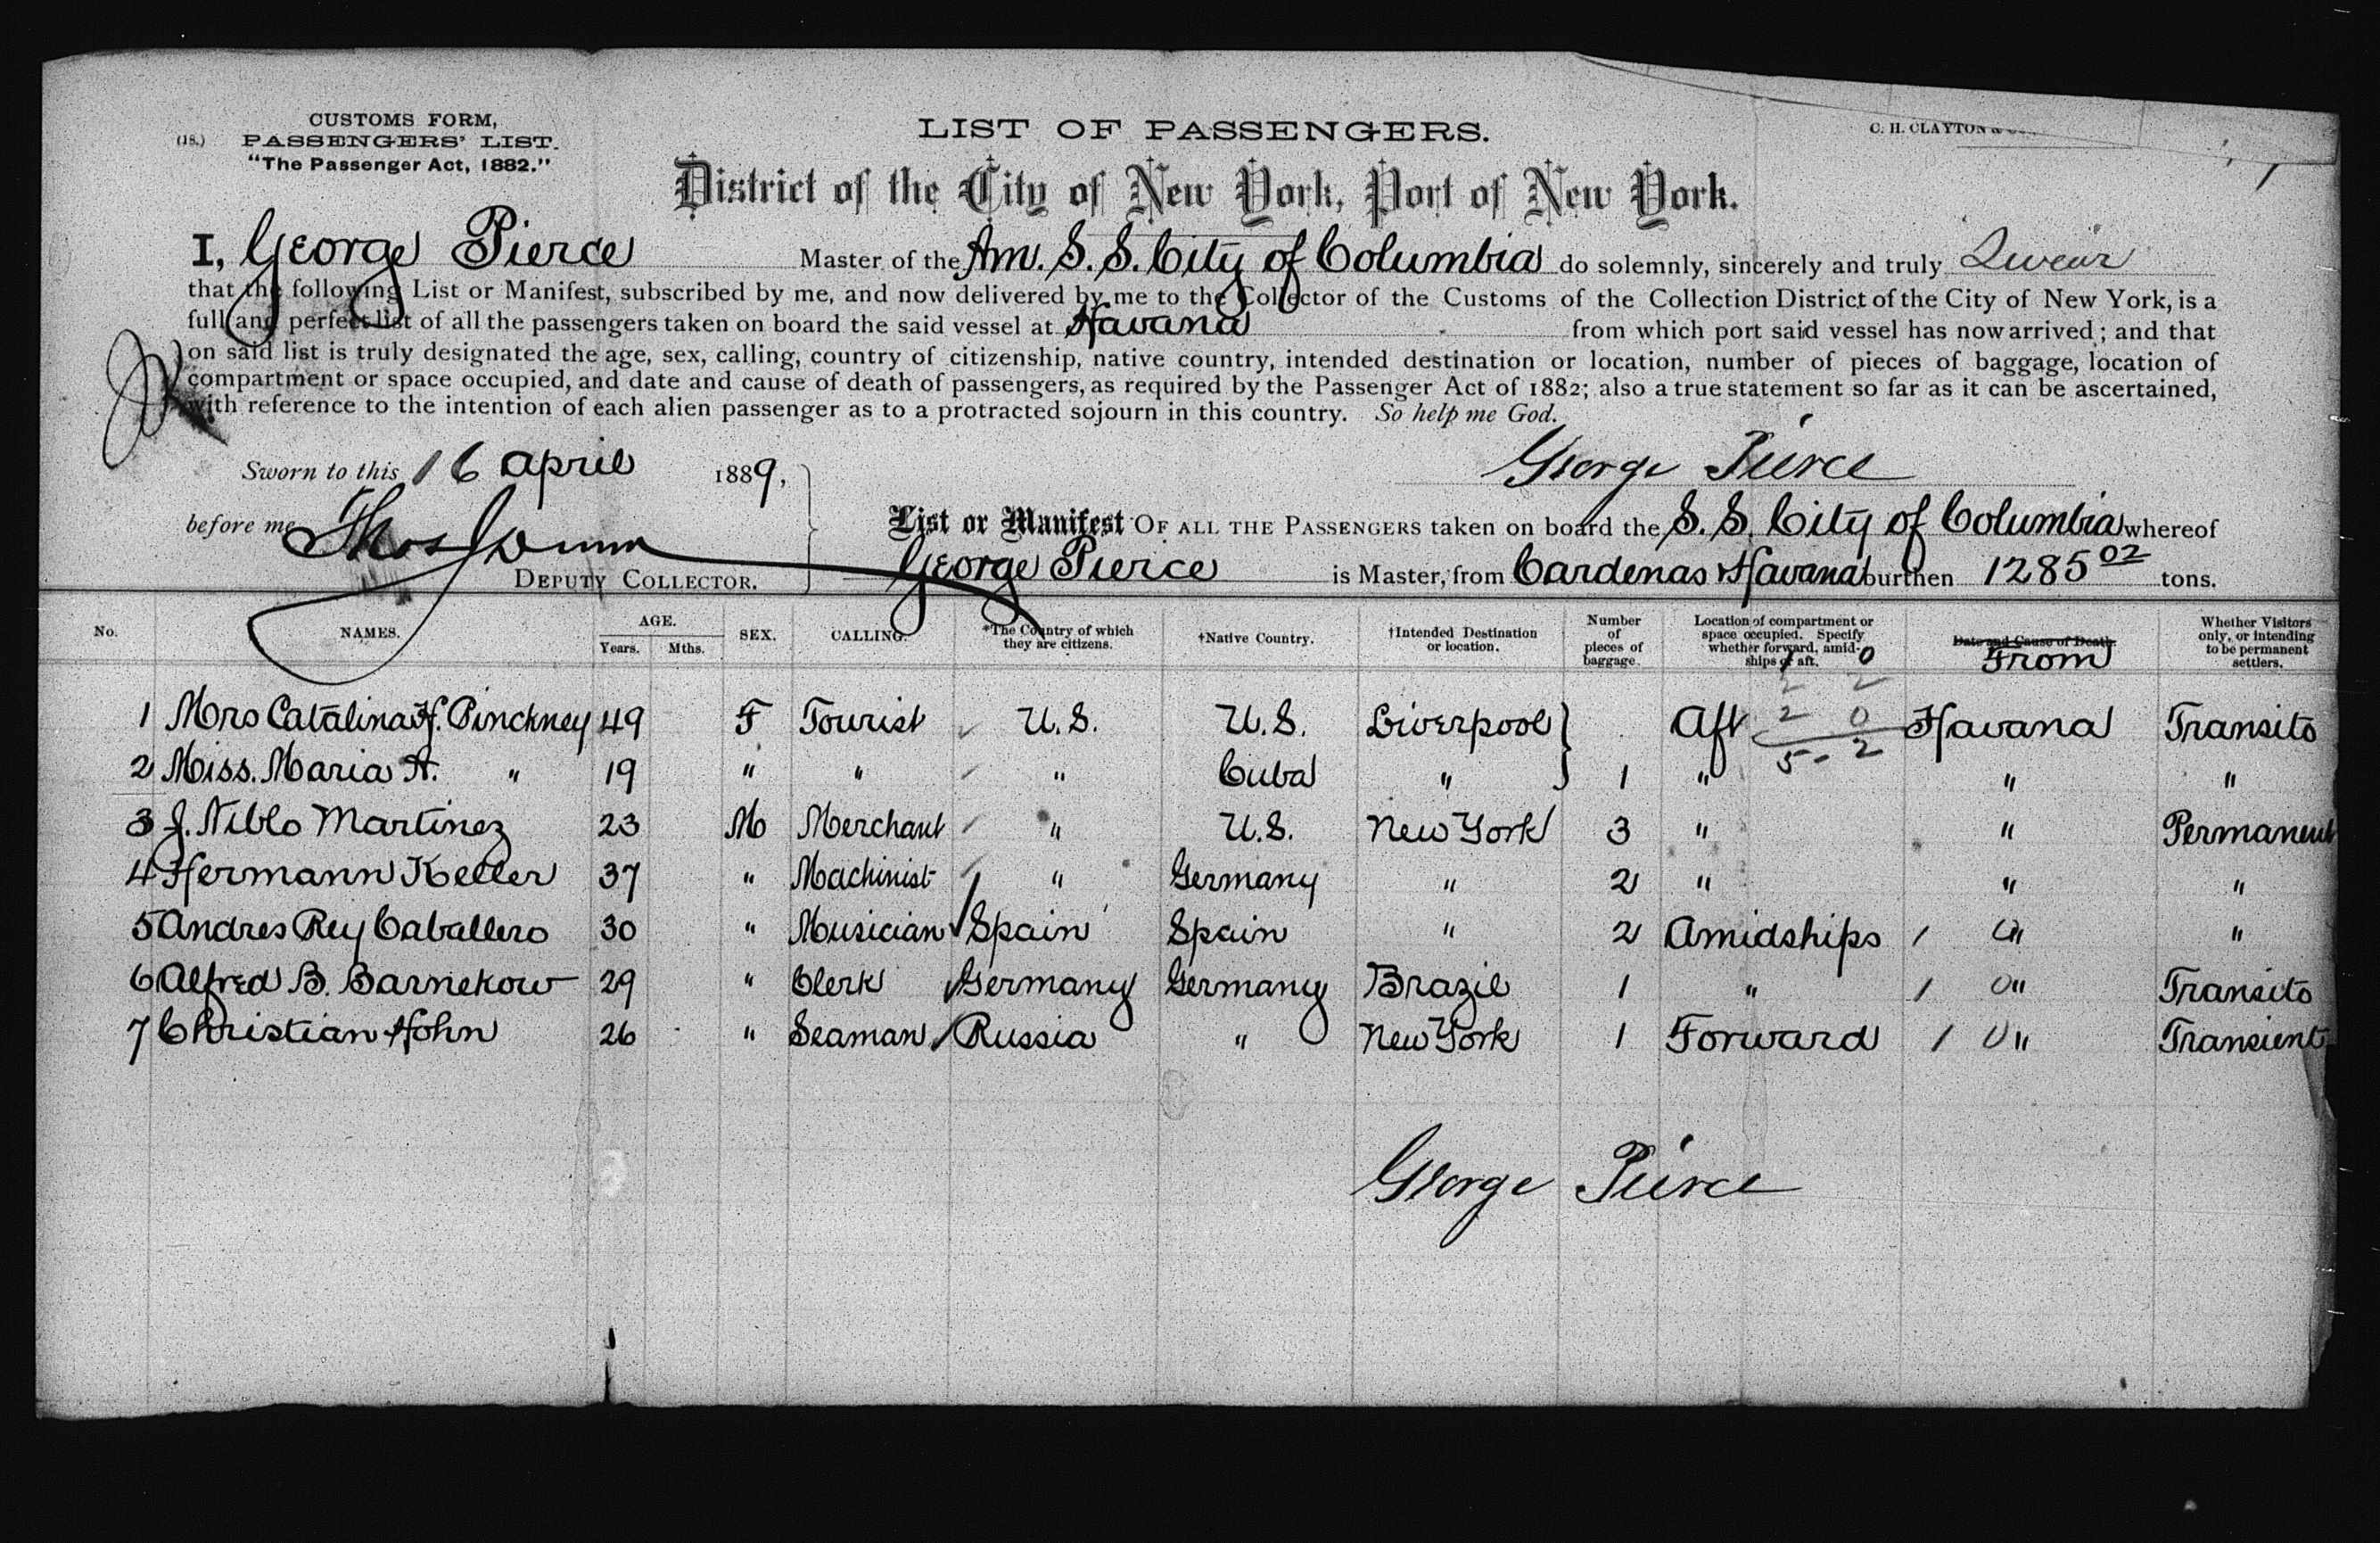 CUSTOMS FORM,
(18.) PASSENGERS' LIST.
"The Passenger Act, 1882."
LIST OF PASSENGERS.
C. H. CLAYTON &
District of the City of New York, Port of New York.
I, George Pierce Master of the Am. S. S. City of Columbia do solemnly, sincerely and truly Swear
that the following List or Manifest, subscribed by me, and now delivered by me to the Collector of the Customs of the Collection District of the City of New York, is a
full and perfect list of all the passengers taken on board the said vessel at Havana from which port said vessel has now arrived; and that
on said list is truly designated the age, sex, calling, country of citizenship, native country, intended destination or location, number of pieces of baggage, location of
compartment or space occupied, and date and cause of death of passengers, as required by the Passenger Act of 1882; also a true statement so far as it can be ascertained,
with reference to the intention of each alien passenger as to a protracted sojourn in this country. So help me God.
Sworn to this 16 April 1889, George Pierce
before me Thos Dunn
List or Manifest OF ALL THE PASSENGERS taken on board the S. S. City of Columbia whereof
George Pierce is Master, from Cardenas & Havana burthen 1285 02 tons.
DEPUTY COLLECTOR.
No. NAMES. AGE. Years. Mths. SEX. CALLING. *The Country of which they are citizens. †Native Country. †Intended Destination or location. Number of pieces of baggage. Location of compartment or space occupied. Specify whether forward, amidships or aft. Date and Cause of Death. From Whether Visitors only, or intending to be permanent settlers.
1 Mrs Catalina H. Pinckney 49 F Tourist U.S. U.S. Liverpool } Aft 2 0 Havana Transito
5-2
2 Miss. Maria A. " 19 " " " Cuba " 1 " " "
3 J. Niblo Martinez 23 M Merchant " U.S. New York 3 " " Permanent
4 Hermann Keller 37 " Machinist " Germany " 2 " " "
5 Andres Rey Caballero 30 " Musician Spain Spain " 2 Amidships 1 0 " "
6 Alfred B. Barnekow 29 " Clerk Germany Germany Brazil 1 " 1 0 " Transito
7 Christian Hohn 26 " Seaman Russia " New York 1 Forward 1 0 " Transient
George Pierce